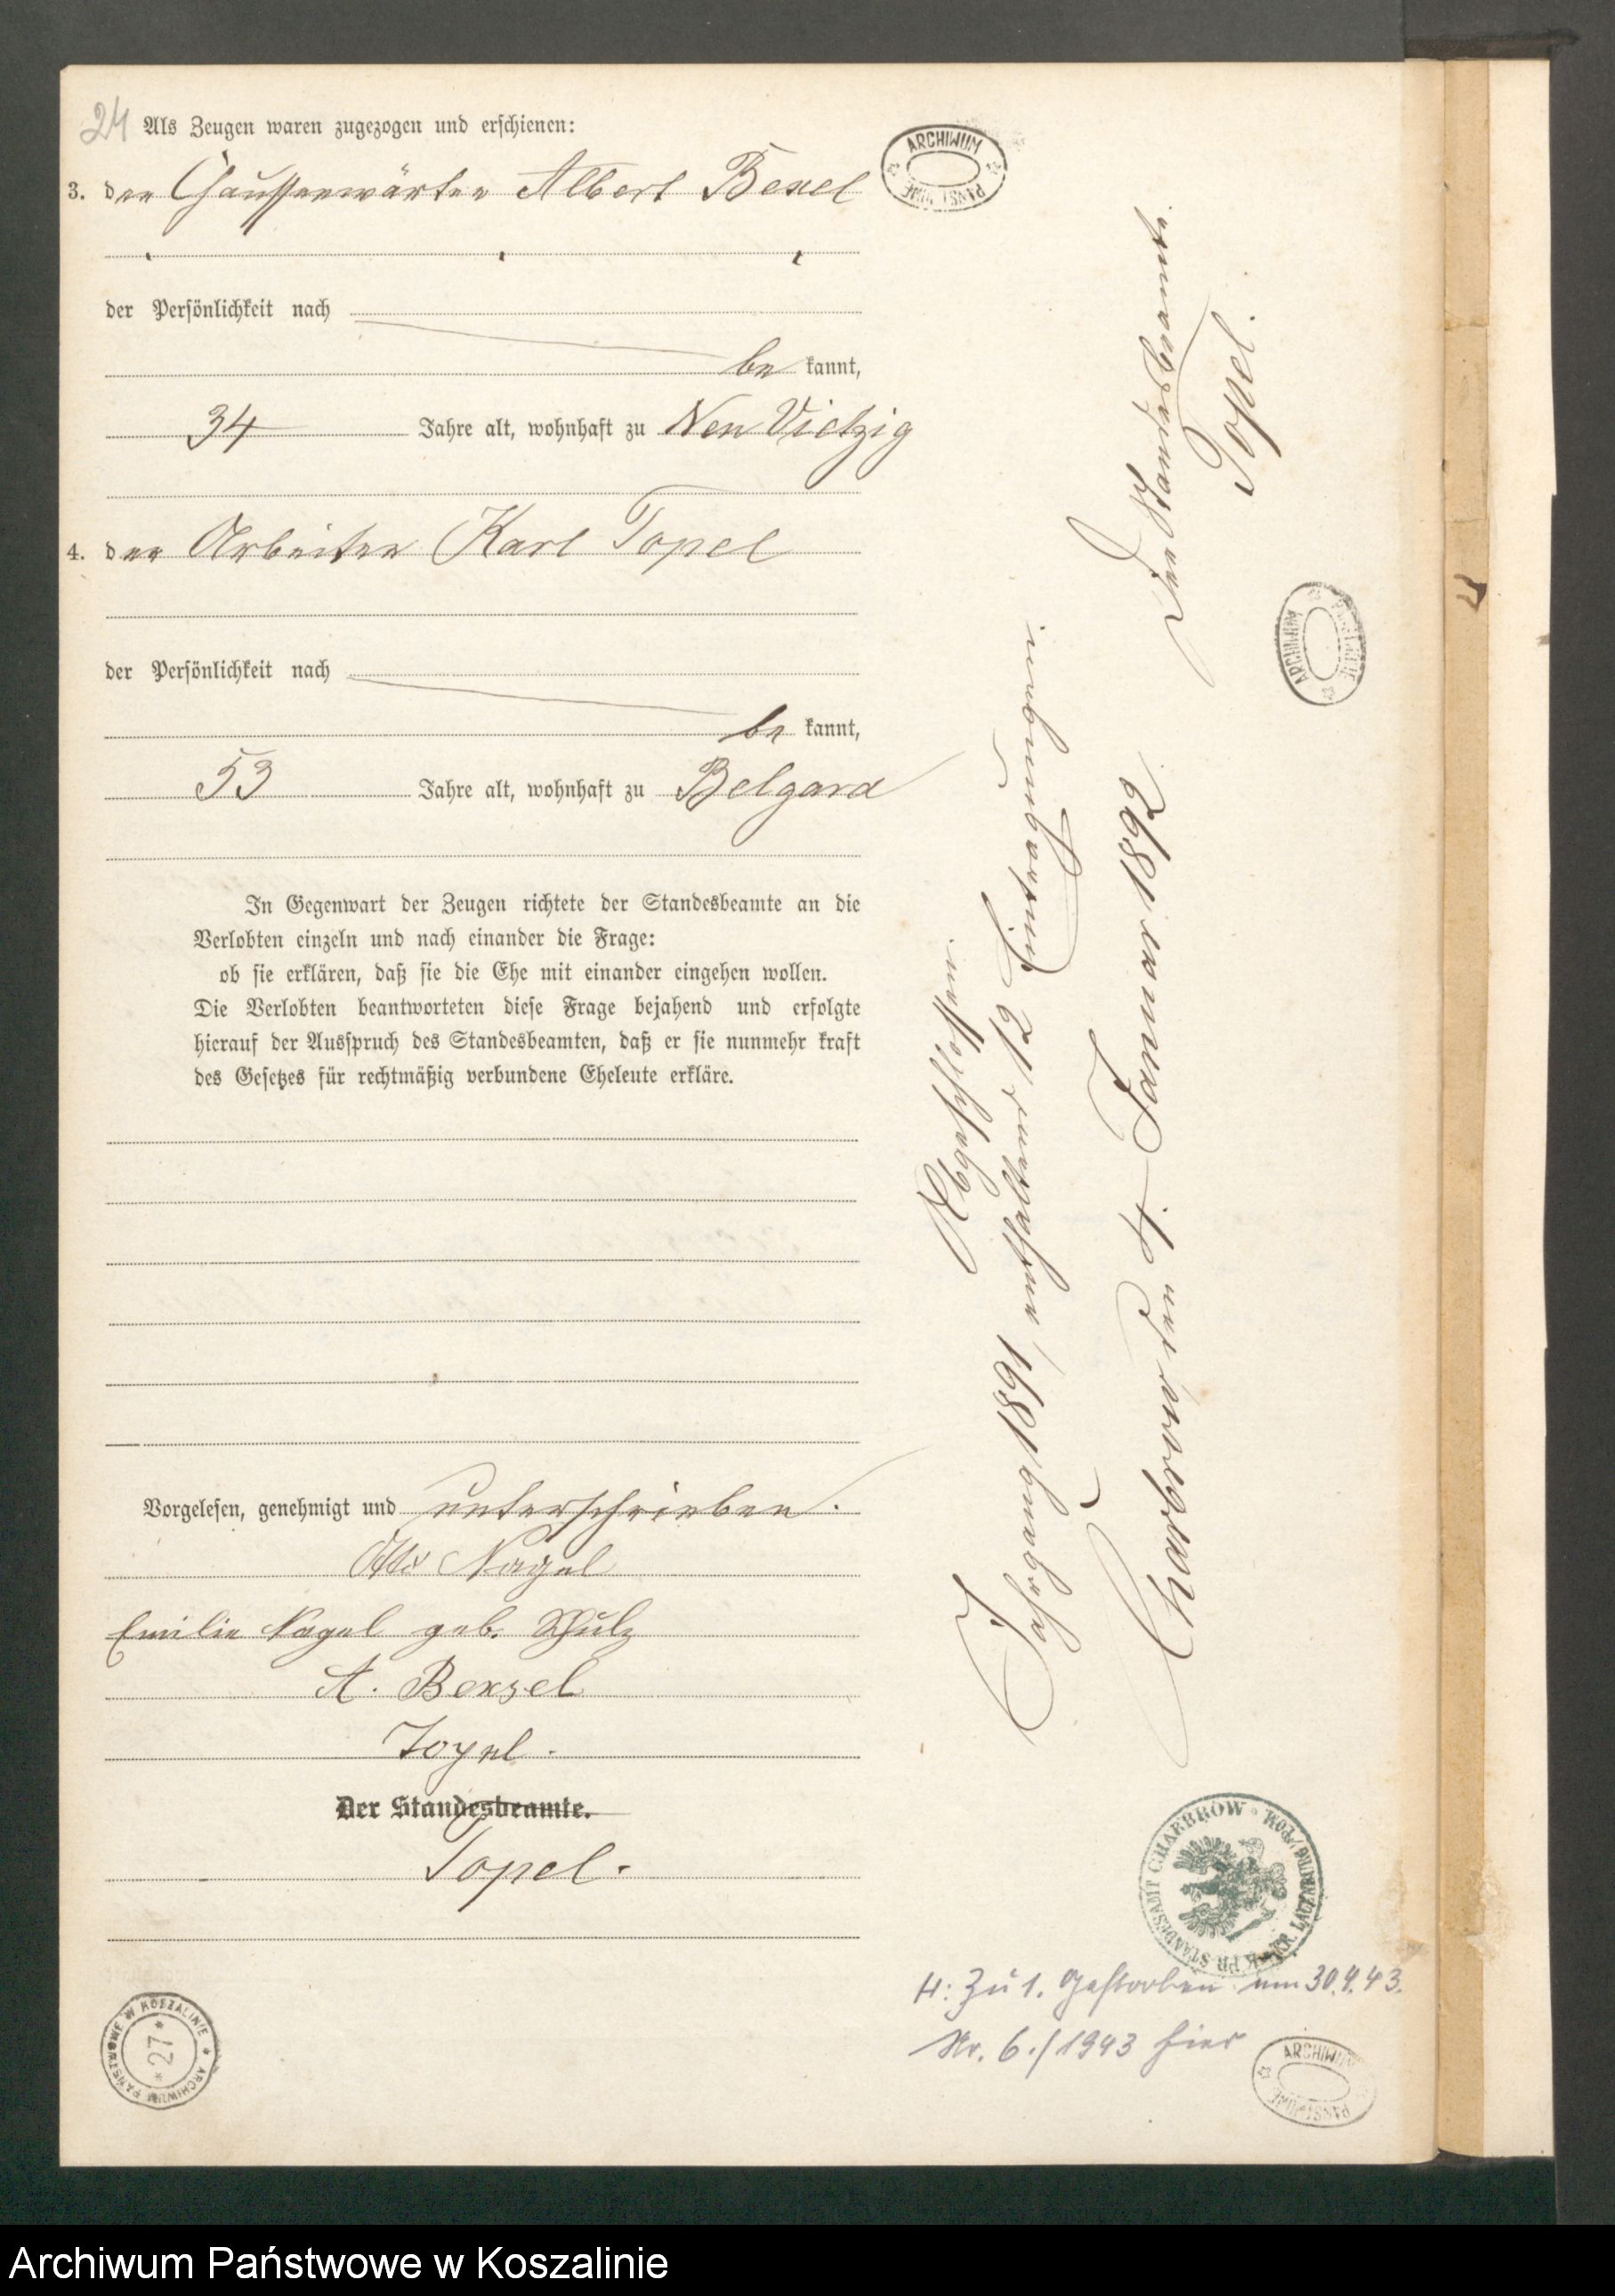 24
Als Zeugen waren zugezogen und erschienen:
3. der Chausseewärter Albert Bexel
der Persönlichkeit nach
be kannt,
34 Jahre alt, wohnhaft zu Neu Vietzig
4. der Arbeiter Karl Topel
der Persönlichkeit nach
be kannt,
53 Jahre alt, wohnhaft zu Belgard
In Gegenwart der Zeugen richtete der Standesbeamte an die
Verlobten einzeln und nach einander die Frage:
ob sie erklären, daß sie die Ehe mit einander eingehen wollen.
Die Verlobten beantworteten diese Frage bejahend und erfolgte
hierauf der Ausspruch des Standesbeamten, daß er sie nunmehr kraft
des Gesetzes für rechtmäßig verbundene Eheleute erkläre.
Vorgelesen, genehmigt und unterschrieben.
Otto Nagel
Emilie Nagel geb. Schulz
A. Bexsel
Topel.
Der Standesbeamte.
Topel.
Abgeschlossen.
Jahrgang 1891, enthaltend 12 Eintragungen
Charbrow, den 4. Januar 1892.
Der Standesbeamte.
Topel.
H: Zu 1. Gestorben am 30.4.43.
Nr. 6./1943 hier
ARCHIWUM PAŃSTWOWE
ARCHIWUM PAŃSTWOWE
K. PR. STANDESAMT CHARBROW * KR. LAUENBURG/POM.
ARCHIWUM PAŃSTWOWE
ARCHIWUM PAŃSTWOWE W KOSZALINIE
* 27 *
Archiwum Państwowe w Koszalinie